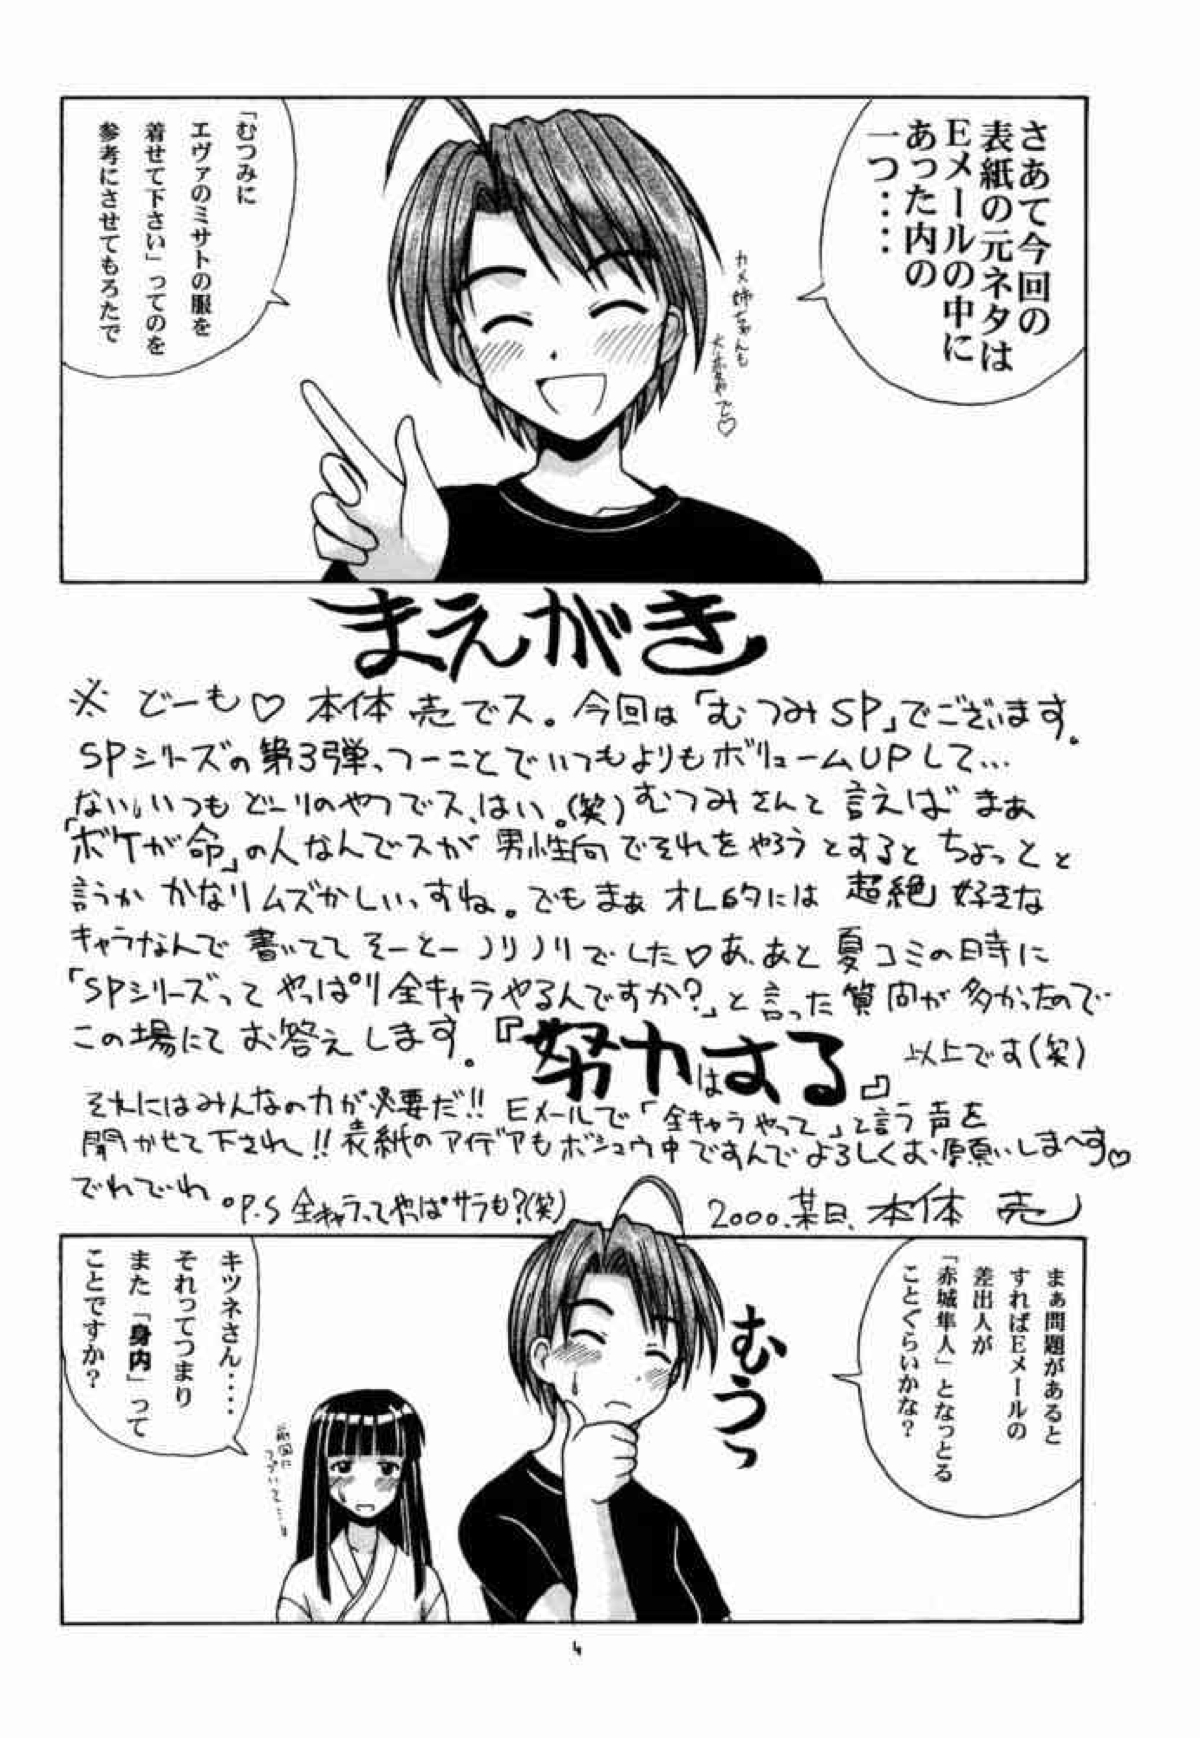 さあて今回の
表紙の元ネタは
Eメールの中に
あった内の
一つ・・・・
カメ姉ちゃんも
大変やで♡
「むつみに
エヴァのミサトの服を
着せて下さい」ってのを
参考にさせてもろたで
まえがき
※ どーも♡ 本体 売でス。今回は「むつみSP」でございます。
SPシリーズの第3弾、つーことでいつもよりもボリュームUPして…
ない、いつもどーりのやつでス、はい。(笑) むつみさんと言えば まぁ
「ボケが命」の人なんでスが 男性向でそれをやろうとすると ちょっとと
言うか かなりムズかしいっすね。でもまぁ オレ的には 超絶 好きな
キャラなんで 書いてて そーとー ノリノリでした♡ あ、あと 夏コミの時に
「SPシリーズって やっぱり全キャラやるんですか?」と言った質問が多かったので
この場にて お答えします。『努力はする』 以上です(笑)
それにはみんなの力が必要だ!! Eメールで「全キャラやって」と言う声を
聞かせて下され!! 表紙のアイデアもボシュウ中ですんで よろしくお願いしま〜す♡
でわでわ。P.S 全キャラってやっぱサラも?(笑) 2000.某日、本体 売
まぁ問題があると
すればEメールの
差出人が
「赤城隼人」となっとる
ことぐらいかな?
むうっ
キツネさん・・・・
それってつまり
また「身内」って
ことですか?
前回に
つづいて…
4